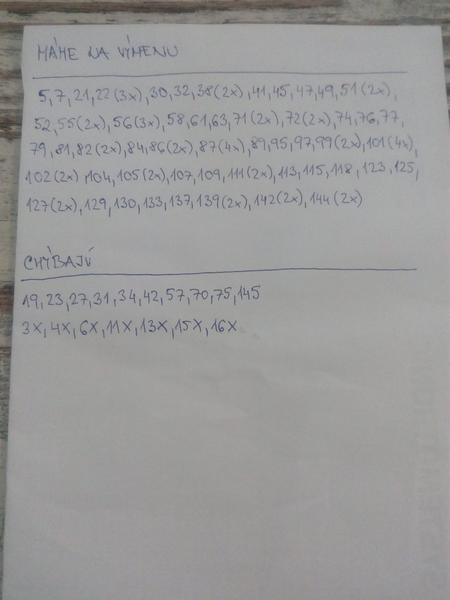 MÁME NA VÝMENU
5,7,21,22(3x),30,32,38(2x),41,45,47,49,51(2x),
52,55(2x),56(3x),58,61,63,71(2x),72(2x),74,76,77,
79,81,82(2x),84,86(2x),87(4x),89,95,97,99(2x),101(4x),
102(2x),104,105(2x),107,109,111(2x),113,115,118,123,125,
127(2x),129,130,133,137,139(2x),142(2x),144(2x)
CHÝBAJÚ
19,23,27,31,34,42,57,70,75,145
3X,4X,6X,11X,13X,15X,16X